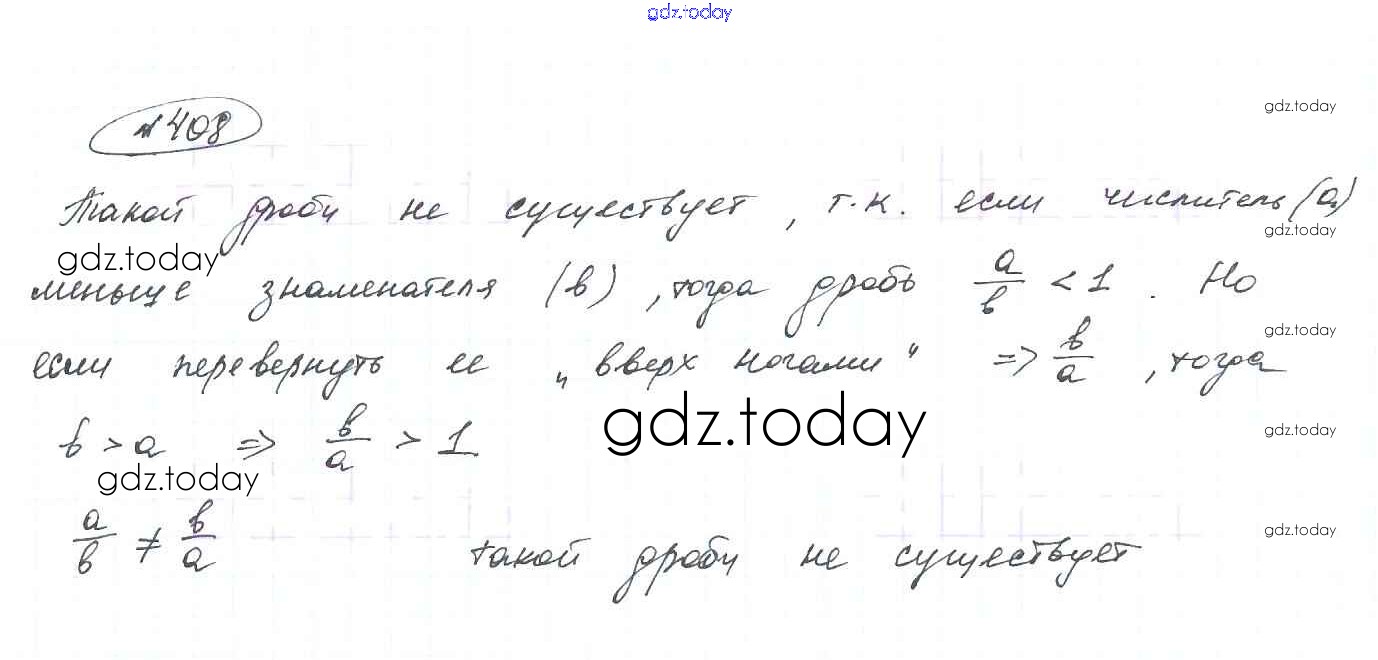 gdz.today
№408
gdz.today
Такой дроби не существует, т.к. если числитель (а)
gdz.today
gdz.today
меньше знаменателя (в), тогда дробь a/в < 1. Но
gdz.today
если перевернуть ее „вверх ногами" => в/a, тогда
gdz.today
в > a => в/a > 1
gdz.today
gdz.today
a/в ≠ в/a такой дроби не существует
gdz.today